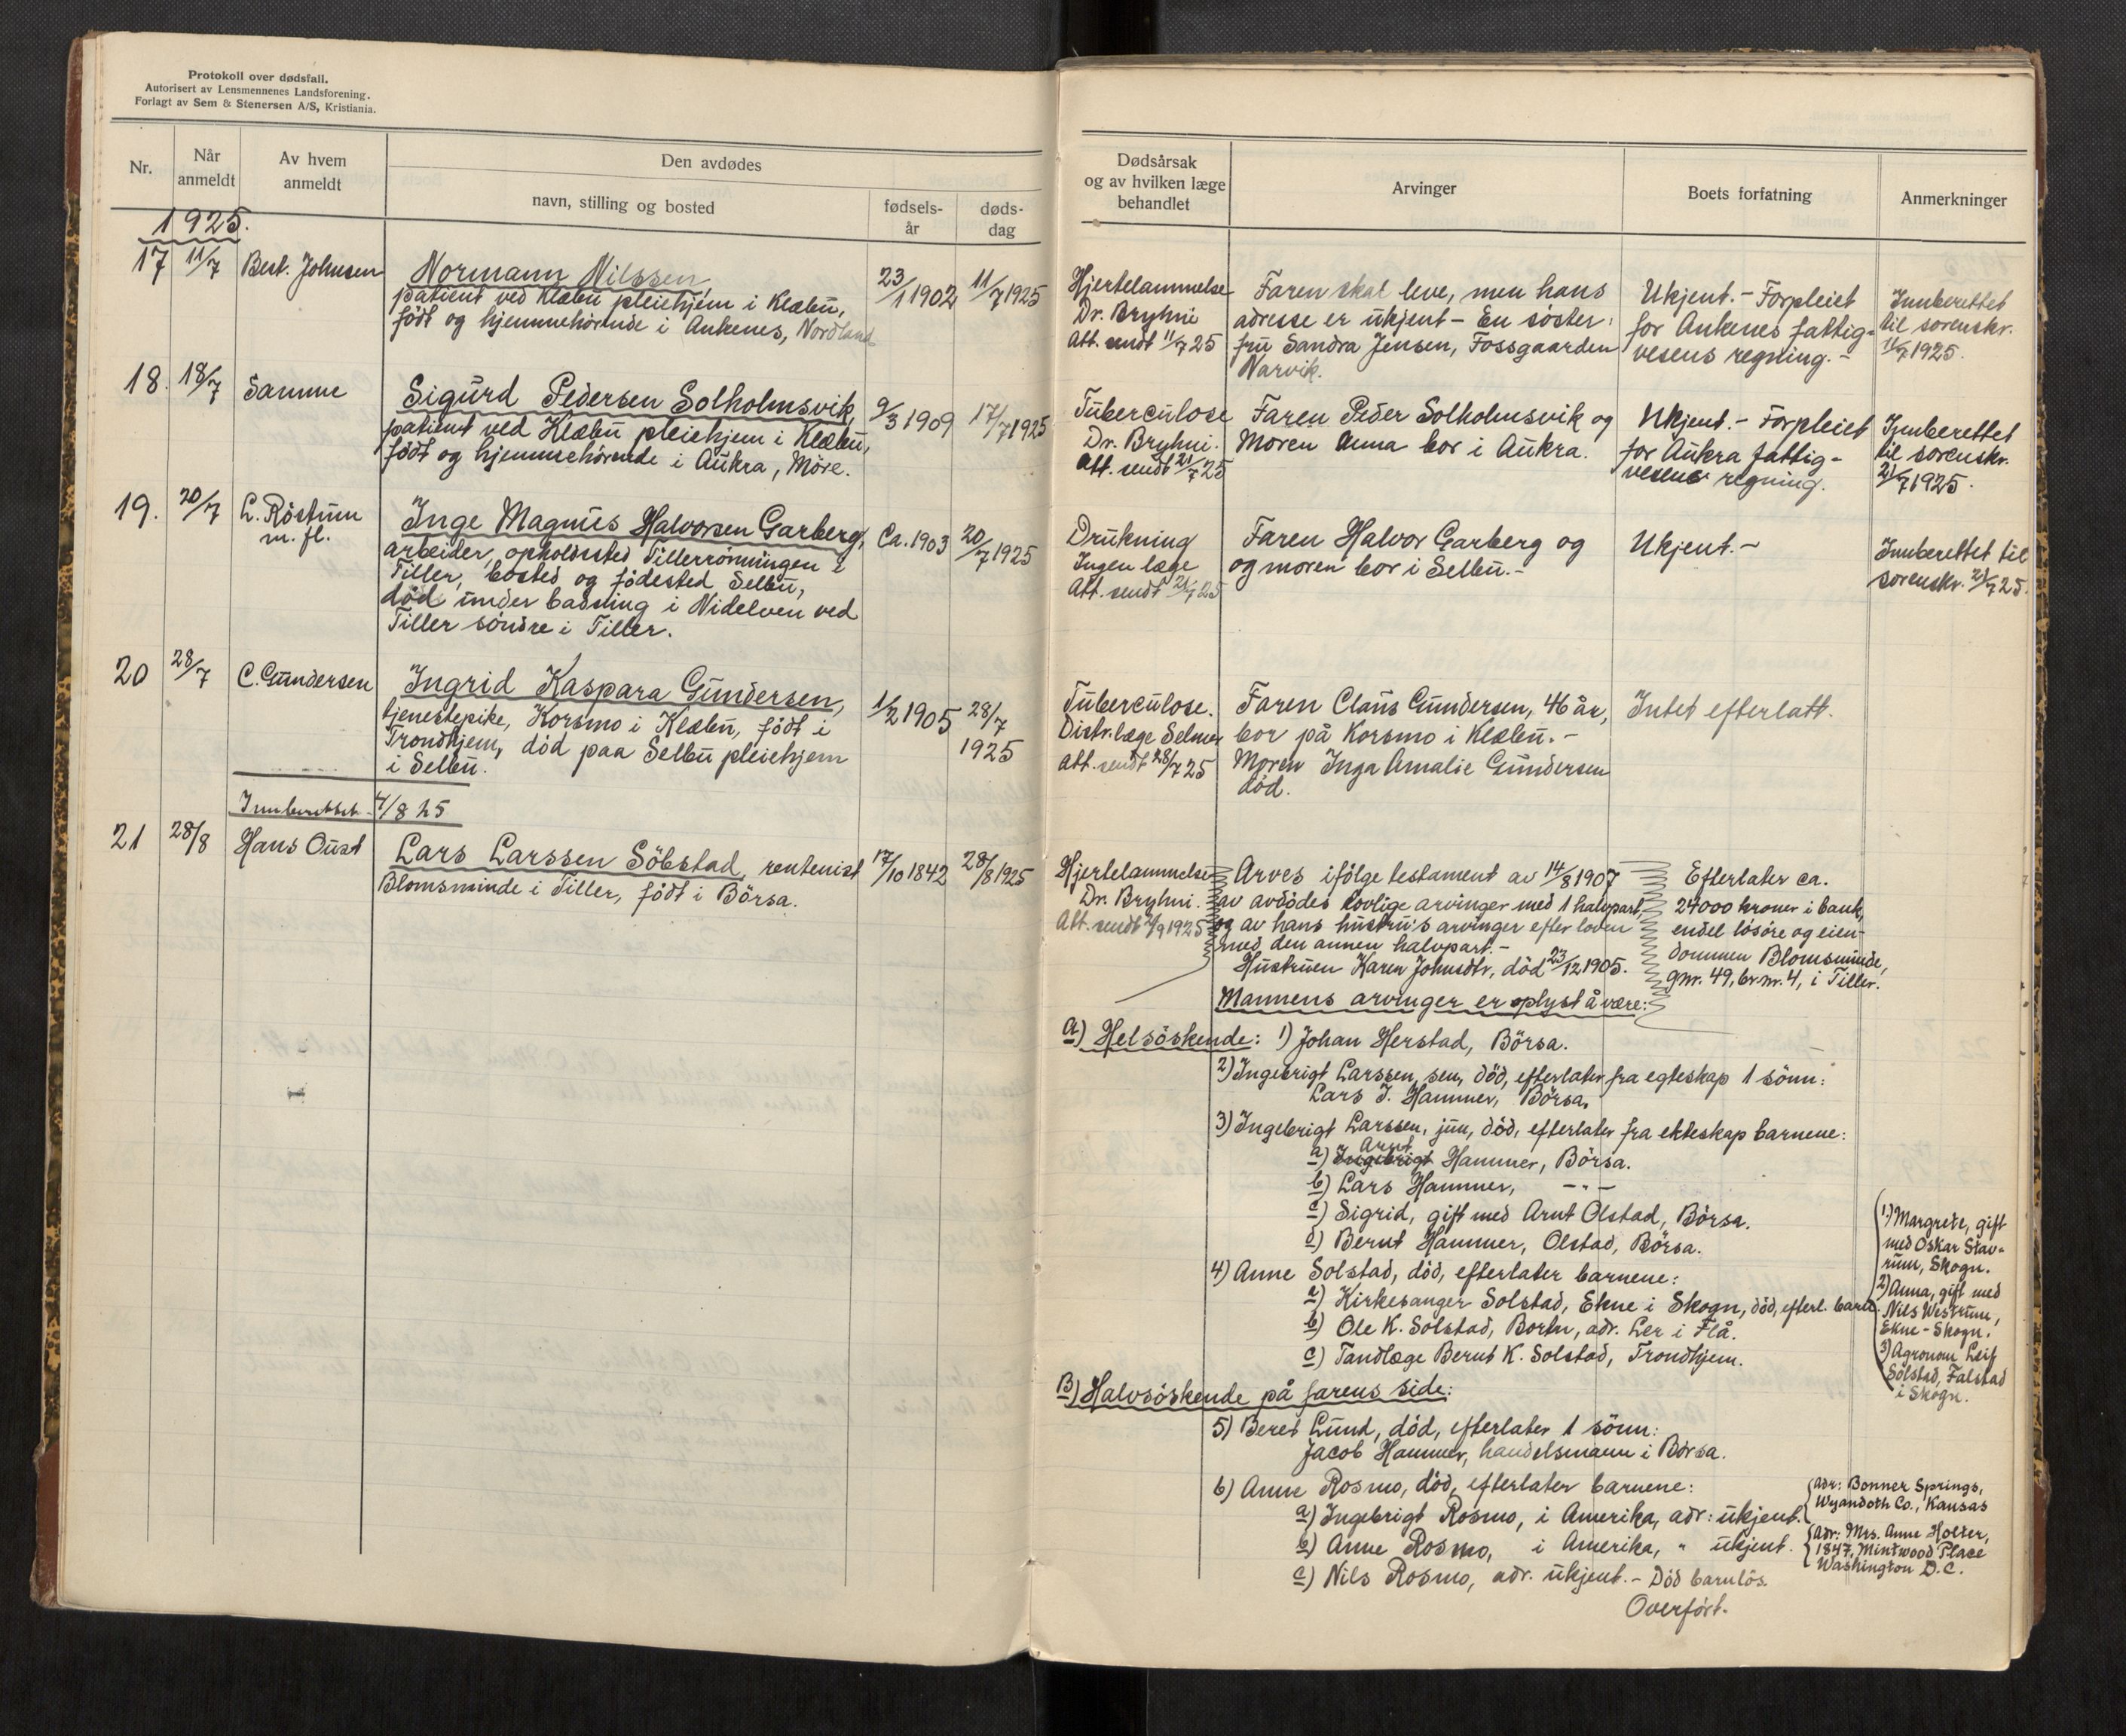 Protokoll over dødsfall.
Autorisert av Lensmennenes Landsforening.
Forlagt av Sem & Stenersen A/S, Kristiania.
Nr.
Når
anmeldt
Av hvem
anmeldt
Den avdødes
navn, stilling og bosted
fødsels-
år
døds-
dag
1925.
17 11/7 Best. Johnsen Normann Nilssen, 23/1 1902 11/7 1925
patient ved Klæbu pleiehjem i Klæbu,
født og hjemmehørende i Ankenes, Nordland
18. 18/7 Samme Sigurd Pedersen Solholmsvik, 9/3 1909 17/7 1925
patient ved Klæbu pleiehjem i Klæbu,
født og hjemmehørende i Aukra, Möre.
19. 20/7 L. Röstum
m. fl.
Inge Magnus Halvorsen Garberg, Ca. 1903 20/7 1925
arbeider, opholdssted Tillerrönningen i
Tiller, bosted og födested Selbu,
död under badning i Nidelven ved
Tiller söndre i Tiller.
20 28/7 C. Gundersen Ingrid Kaspara Gundersen, 1/2 1905 28/7
1925
tjenestepike, Korsmo i Klæbu, födt i
Trondhjem, död paa Selbu pleiehjem
i Selbu.
Innberettet 4/8 25
21 28/8 Hans Oust Lars Larssen Söbstad, rentenist 17/10 1842 28/8 1925
Blomsminde i Tiller, födt i Börsa.
Dødsårsak
og av hvilken læge
behandlet
Arvinger
Boets forfatning
Anmerkninger
Hjertelammelse
Dr. Bryhni
Att. sendt 11/7 25
Faren skal leve, men hans
adresse er ukjent - En söster:
fru Sandra Jensen, Fossgaarden
Narvik.
Ukjent. - Forpleiet
for Ankenes fattig-
vesens regning. -
Innberettet
til sorenskr.
11/7 1925.
Tuberculose
Dr. Bryhni.
Att. sendt 21/7 25
Faren Peder Solholmsvik og
Moren Anna bor i Aukra.
Ukjent. - Forpleiet
for Aukra fattig-
vesens regning.
Innberettet
til sorenskr.
21/7 1925.
Drukning
Ingen læge
Att. sendt 21/7 25
Faren Halvor Garberg og
og moren bor i Selbu. -
Ukjent. -
Innberettet til
sorenskr. 21/7 25.
Tuberculose.
Distr. læge Selmer
Att. sendt 28/7 25
Faren Claus Gundersen, 46 år,
bor på Korsmo i Klæbu. -
Moren Inga Amalie Gundersen
död.
Intet efterlatt.
Hjertelammelse
Dr. Bryhni.
Att. sendt /9 1925
Arves ifölge testament av 14/8 1907
av avdödes lovlige arvinger med 1 halvpart,
og av hans hustru's arvinger efter loven
med den annen halvpart. -
Hustruen Karen Johnsdtr, död 23/12 1905.
Efterlater ca.
24000 kroner i bank,
endel lösöre og eien-
dommen Blomsminde,
gnr. 49, br.nr. 4, i Tiller.
Mannens arvinger er oplyst å være:
A) Helsöskende: 1) Johan Herstad, Börsa.
2) Ingebrigt Larssen, sen, död, efterlater fra egteskap 1 sönn:
Lars I. Hammer, Börsa.
3) Ingebrigt Larssen, jun, död, efterlater fra ekteskap barnene:
Arnt
a) Ingebrigt Hammer, Börsa.
b) Lars Hammer, - " -
c) Sigrid, gift med Arnt Olstad, Börsa.
d) Bernt Hammer, Olstad, Börsa.
4) Anne Solstad, död, efterlater barnene:
a) Kirkesanger Solstad, Ekne i Skogn, död, efterl. barn:
1) Margrete, gift
med Oskar Stav-
rum, Skogn.
2) Anna, gift med
Nils Westrum,
Ekne - Skogn.
3) Agronom Leif
Solstad, Falstad
i Skogn.
b) Ole K. Solstad, Borten, adr. Ler i Flå.
c) Tandlæge Bernt K. Solstad, Trondhjem.
B) Halvsöskende på farens side:
5) Beret Lund, död, efterlater 1 sönn:
Jacob Hammer, handelsmann i Börsa.
6) Anne Rosmo, död, efterlater barnene:
a) Ingebrigt Rosmo, i Amerika, adr: ukjent.
Adr: Bonner Springs,
Wyandoth Co., Kansas
b) Anne Rosmo, i Amerika, " ukjent.
Adr: Mrs. Anne Holter,
1847, Mintwood Place
Washington D.C.
c) Nils Rosmo, adr. ukjent. - Död barnlös.
Overfört.